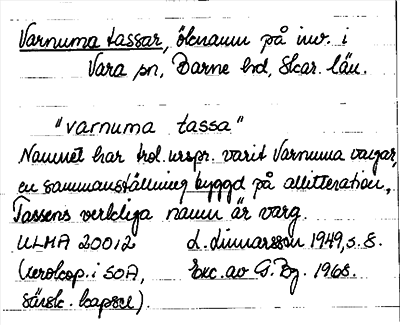 Varnuma tassar, öknamn på inv. i
Vara sn, Barne hd, Skar. län.
"varnuma tassa"
Namnet har trol. urspr. varit Varnuma vargar,
en sammanställning byggd på allitteration,
Tassens verkliga namn är varg.
ULMA 20012 L. Linnarsson 1949, s. 8.
(xerokop. i SOA, Exc. av G. Bg. 1968.
särsk. kapsel).